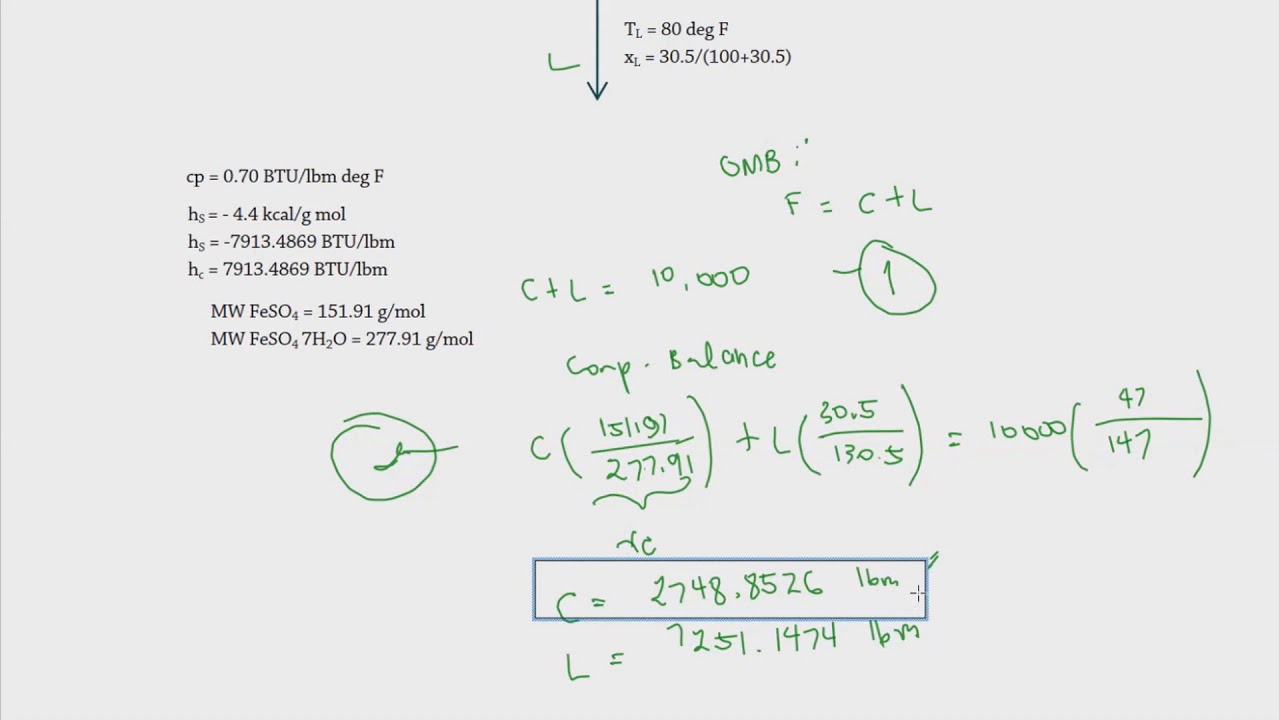 T_L = 80 deg F
L
x_L = 30.5/(100+30.5)
OMB :
cp = 0.70 BTU/lbm deg F
F = C + L
h_S = - 4.4 kcal/g mol
h_S = -7913.4869 BTU/lbm
h_c = 7913.4869 BTU/lbm
C + L = 10,000 1
MW FeSO₄ = 151.91 g/mol
MW FeSO₄ 7H₂O = 277.91 g/mol
Comp. Balance
C ( 151.91 / 277.91 ) + L ( 30.5 / 130.5 ) = 10000 ( 47 / 147 )
xc
C = 2748.8526 lbm
L = 7251.1474 lbm